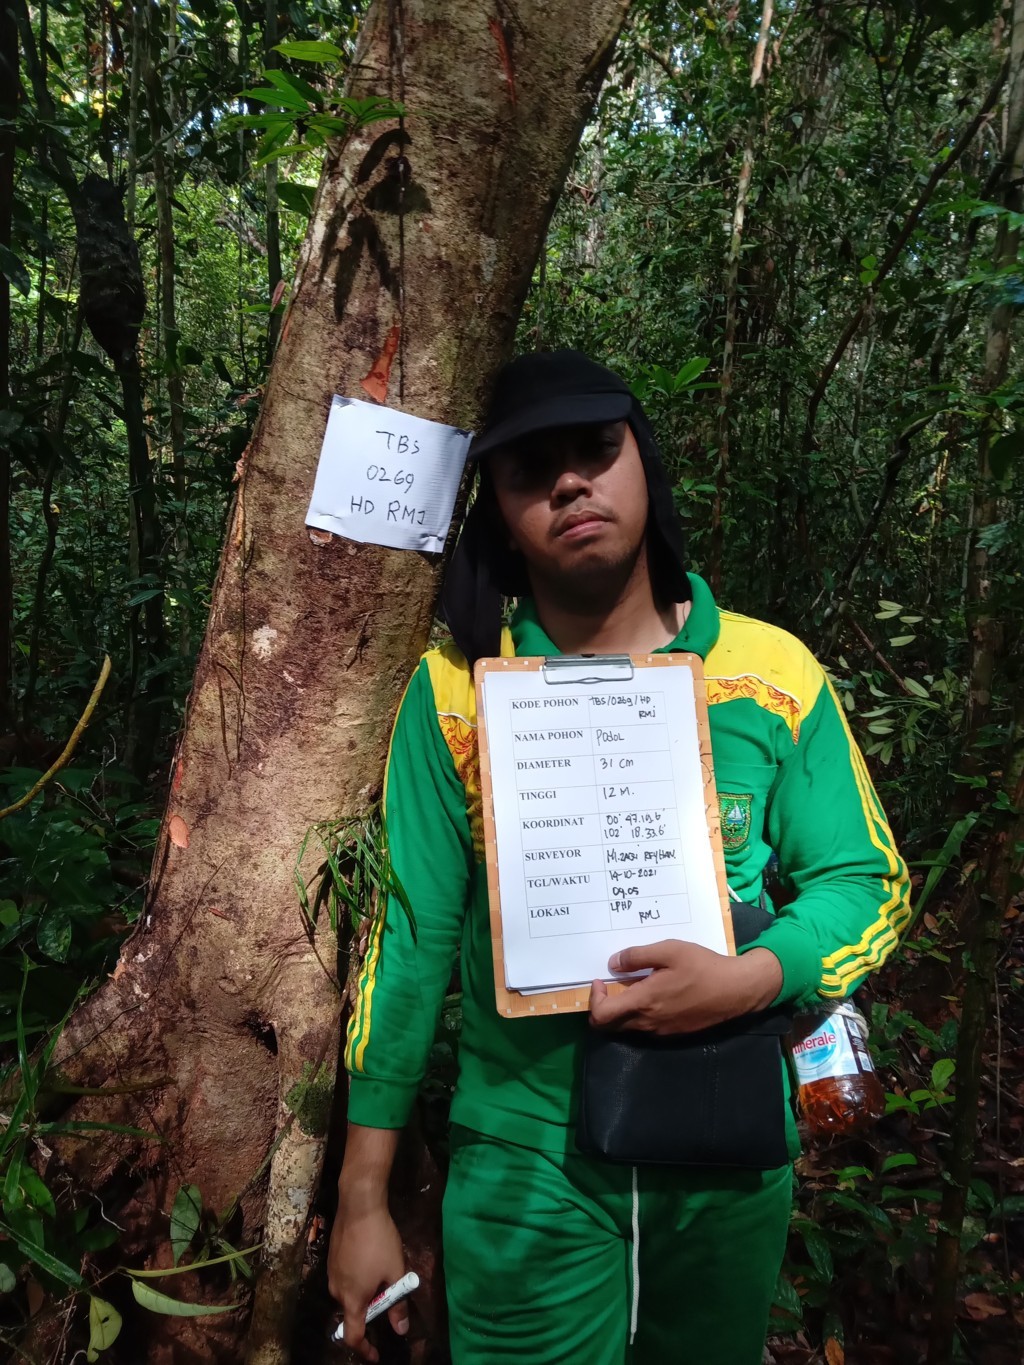 TBS
0269
HD RMJ
KODE POHON TBS/0269/HD
RMJ
NAMA POHON Podol
DIAMETER 31 cm
TINGGI 12 M.
KOORDINAT 00° 47.19.6'
102° 18.33.6'
SURVEYOR M.ZAKI REYHAN.
TGL/WAKTU 14-10-2021
09.05
LOKASI LPHD
RMJ
nerale